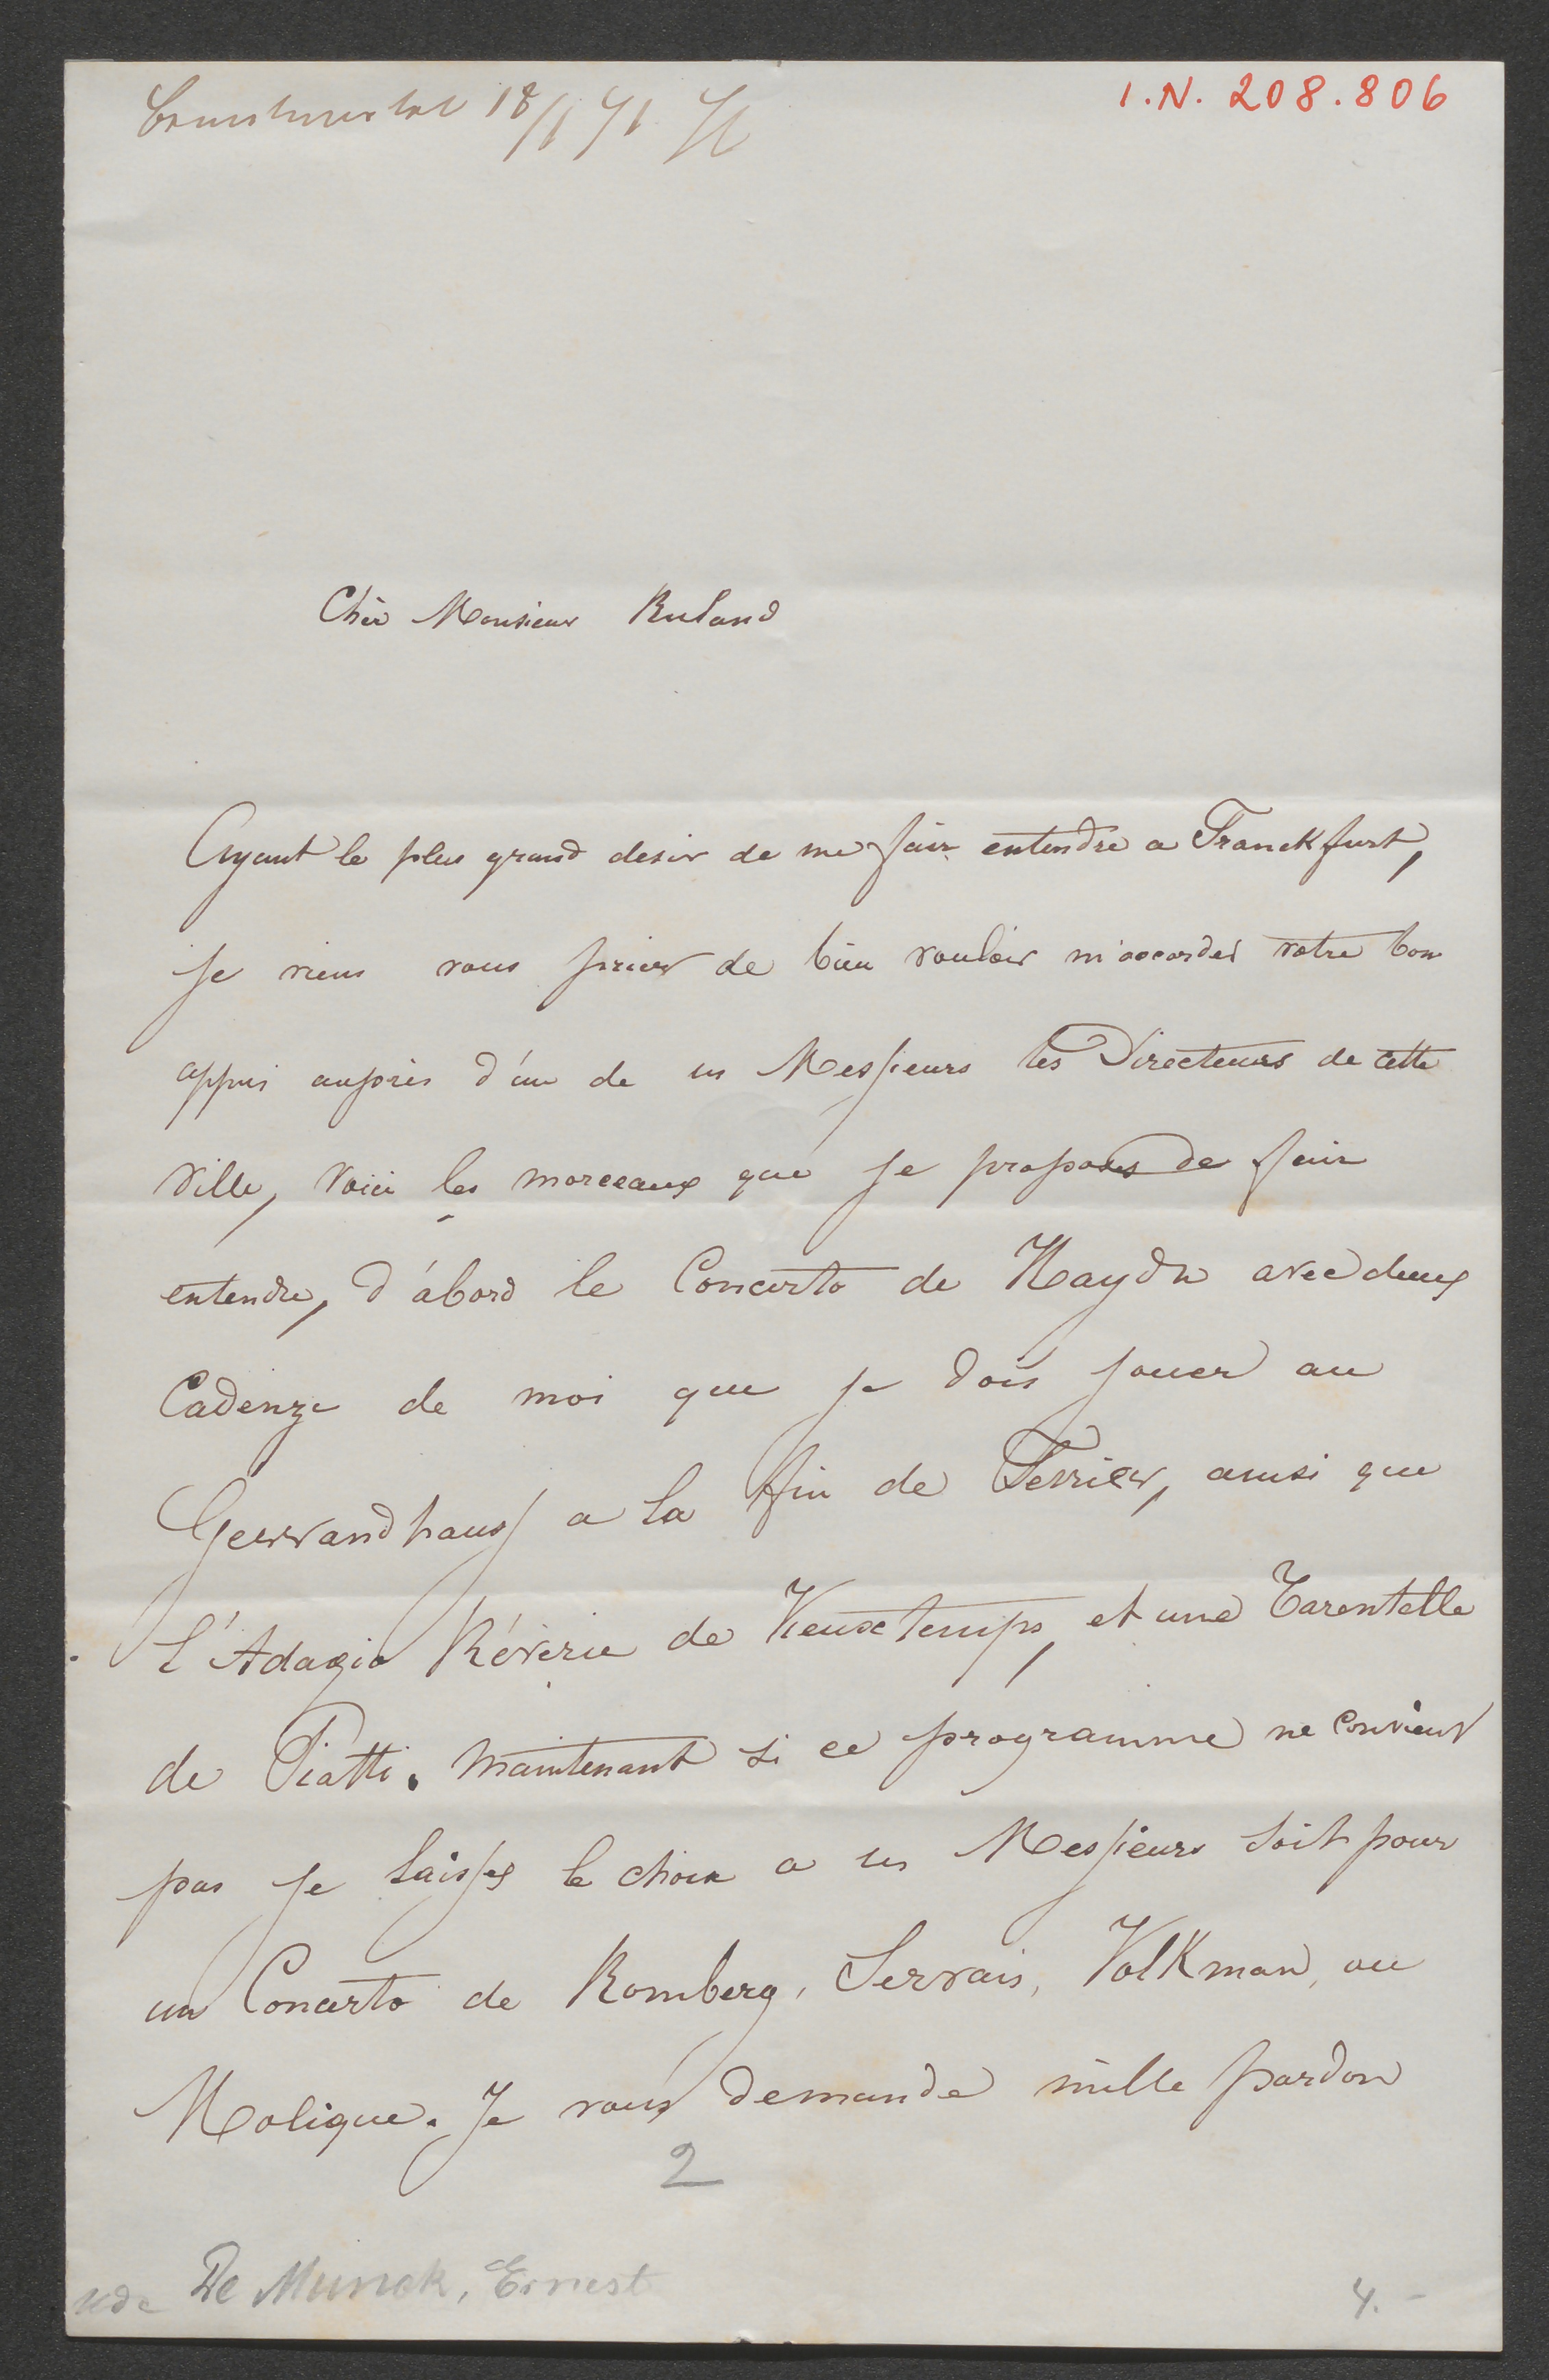 18/1 71
I.N. 208.806
Chèr Monsieur Ruland
Ayant le plus grand desir de me fair entendre a Franckfurt,
je viens vous prier de bien vouloir m'accorder votre bon
appui auprès d'un de ces Messieurs les Directeurs de cette
Ville, Voici les morceaux que je proposes de fair
entendre, d'abord le Concerto de Haydn avec deux
Cadenze de moi que je dois jouer au
Gewandhaus a la fin de Fevrier, ainsi que
l'Adagio Rêverie de Vieuxtemps, et une Tarentelle
de Piatti. Maintenant si ce programme ne convient
pas je laisse le choix a ces Messieurs soit pour
un Concerto de Romberg, Servais, Volkman, ou
Molique. Je vous demande mille pardon
2
De Munck, Ernest
4.-